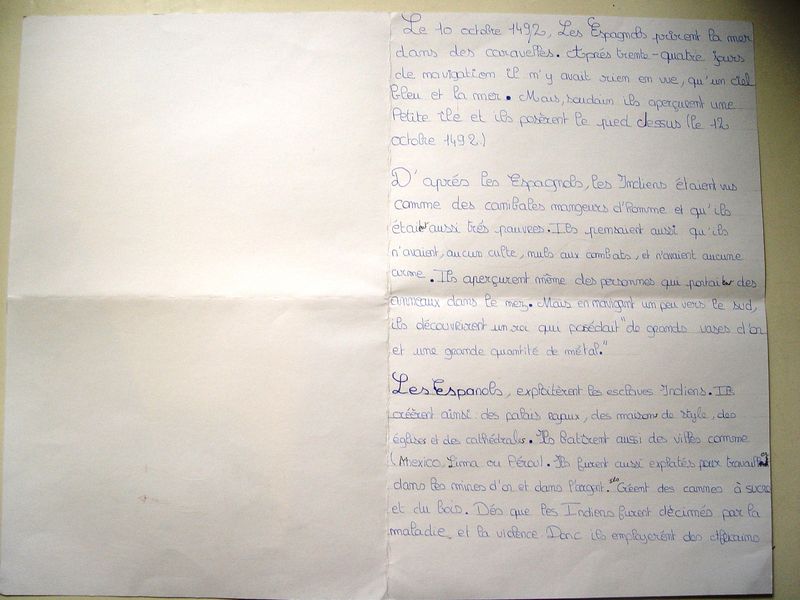 Le 10 octobre 1492, Les Espagnols prirent la mer
dans des caravelles. Après trente-quatre jours
de navigation il n'y avait rien en vue, qu'un ciel
bleu et la mer. Mais, soudain ils aperçurent une
Petite île et ils posèrent le pied dessus (le 12
octobre 1492)
D'après les Espagnols, les Indiens étaient vus
comme des cannibales mangeurs d'homme et qu'ils
était aussi trés pauvres. Ils pensaient aussi qu'ils
n'avaient, aucun culte, nuls aux combats, et n'avaient aucune
arme. Ils aperçurent même des personnes qui portait des
anneaux dans le nez. Mais en navigant un peu vers le sud,
ils découvrirent un roi qui posédait "de grands vases d'or
et une grande quantité de métal."
Les Espanols, exploitèrent les esclaves Indiens. Ils
créèrent ainsi: des palais royaux, des maisons de style, des
églises et des cathédrales. Ils batirent aussi des villes comme
(Mexico, Lima ou Pérou). Ils furent aussi exploités pour travailler
dans les mines d'or et dans l'argent. Créent des cannes à sucre
et du bois. Dés que les Indiens furent décimés par la
maladie, et la violence Donc ils employerént des Africains